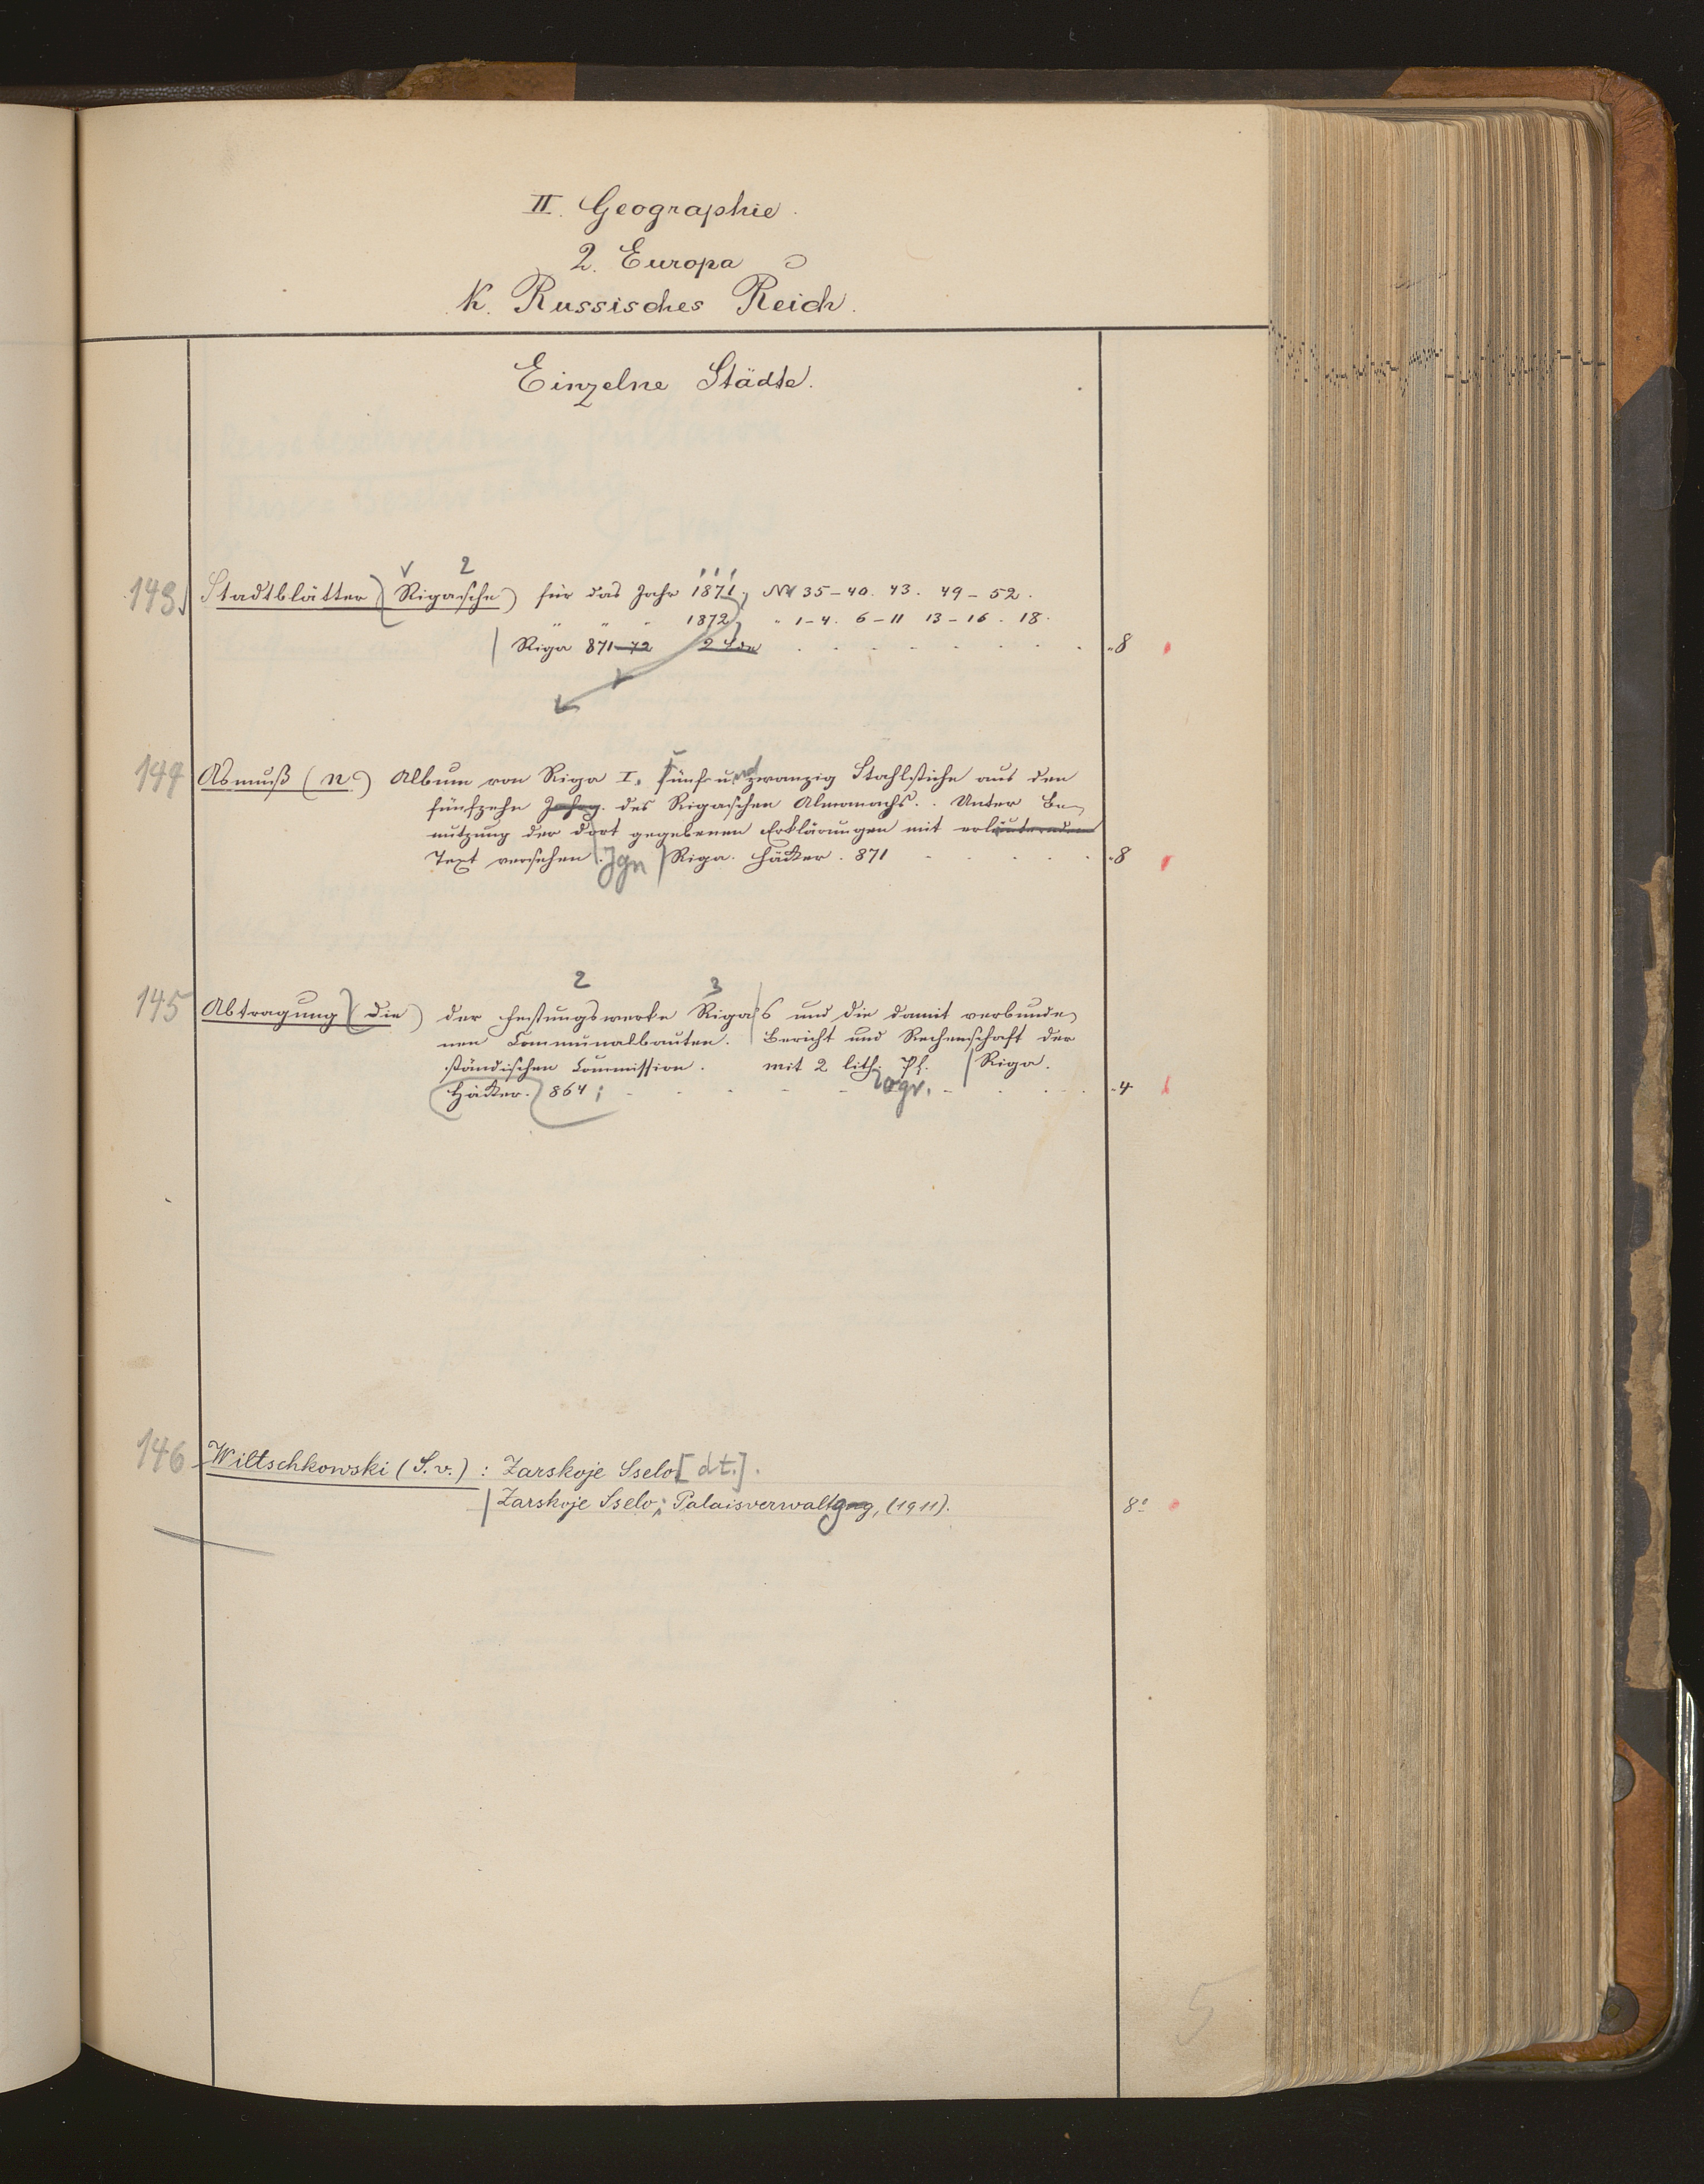 II. Geographie.
2. Europa
k. Russisches Reich.
Einzelne Städte.
2
143. Stadtblätter (Rigasche) für das Jahr 1871, No 35-40. 43. 49-52.
" " " 1872, " 1-4. 6-11 13-16. 18.
Riga 871-72 2 Bde .8
144 Asmuß (N.) Album von Riga I. Fünfundzwanzig Stahlstiche aus den
fünfzehn Jahrg. des Rigaschen Almanachs.. Unter Be-
nutzung der dort gegebenen Erklärungen mit erläuterndem
Text versehen. Jgn Riga. Häcker. 871 .8
2 3
145 Abtragung (die) der Festungswerke Riga's und die damit verbunde-
nen Communalbauten. Bericht und Rechenschaft der
ständischen Commission. mit 2 lith. Pl. Riga.
Häcker. 864; .4
146 Wiltschkowski (S. v.): Zarskoje Sselo [dt.].
Zarskoje Sselo: Palaisverwaltg, (1911). 8°
5